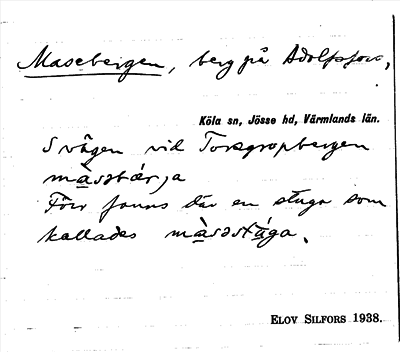 Masebergen, berg på Adolfsfors,
Köla sn, Jösse hd, Värmlands län.
S vägen vid Torsgropbergen
màsəbær̨a
Förr fanns där en stuga som
kallades màsəstúga.
ELOV SILFORS 1938.